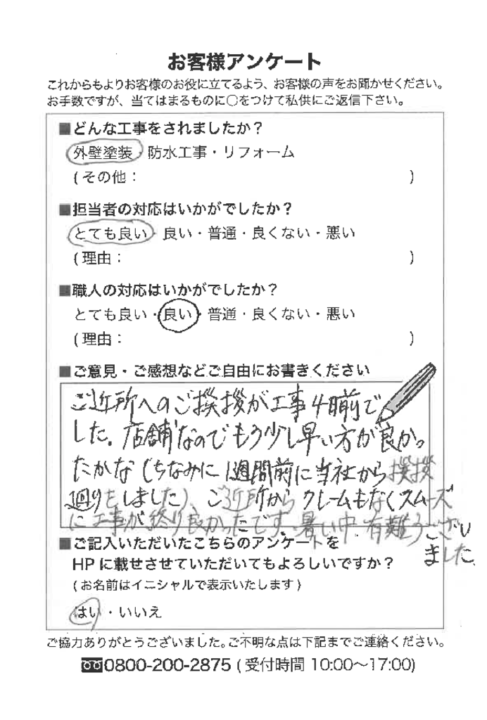 お客様アンケート
これからもよりお客様のお役に立てるよう、お客様の声をお聞かせください。
お手数ですが、当てはまるものに〇をつけて私供にご返信下さい。
■どんな工事をされましたか？
外壁塗装・防水工事・リフォーム
(その他： )
■担当者の対応はいかがでしたか？
とても良い・良い・普通・良くない・悪い
(理由： )
■職人の対応はいかがでしたか？
とても良い・良い・普通・良くない・悪い
(理由： )
■ご意見・ご感想などご自由にお書きください
ご近所へのご挨拶が工事4日前で
した。店舗なのでもう少し早い方が良かっ
たかな(ちなみに1週間前に当社から挨拶
廻りをしました)、ご近所からクレームもなくスムーズ
に工事が終り良かったです。暑い中、有難うござい
ました
■ご記入いただいたこちらのアンケートを
HPに載せさせていただいてもよろしいですか？
(お名前はイニシャルで表示いたします)
はい・いいえ
ご協力ありがとうございました。ご不明な点は下記までご連絡ください。
0800-200-2875 (受付時間 10:00～17:00)